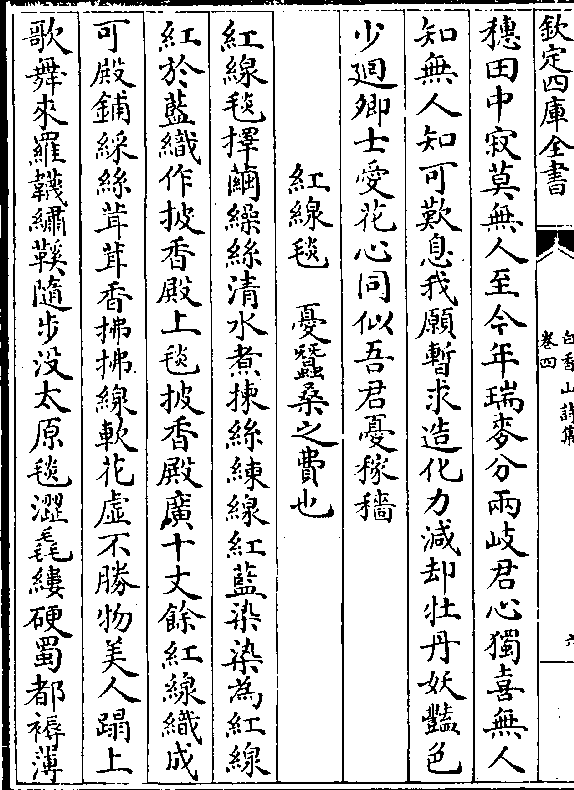 欽定四庫全書
白香山詩集
卷四
六
穗田中寂莫無人至今年瑞麥分兩岐君心獨喜無人
知無人知可歎息我願暫求造化力減却牡丹妖豔色
少廻卿士愛花心同似吾君憂稼穡
紅線毯　憂蠶桑之費也
紅線毯擇繭繰絲清水煮揀絲練線紅藍染染為紅線
紅於藍織作披香殿上毯披香殿廣十丈餘紅線織成
可殿鋪綵絲茸茸香拂拂線軟花虛不勝物美人蹋上
歌舞來羅韈繡鞵隨步没太原毯澀毳縷硬蜀都褥薄